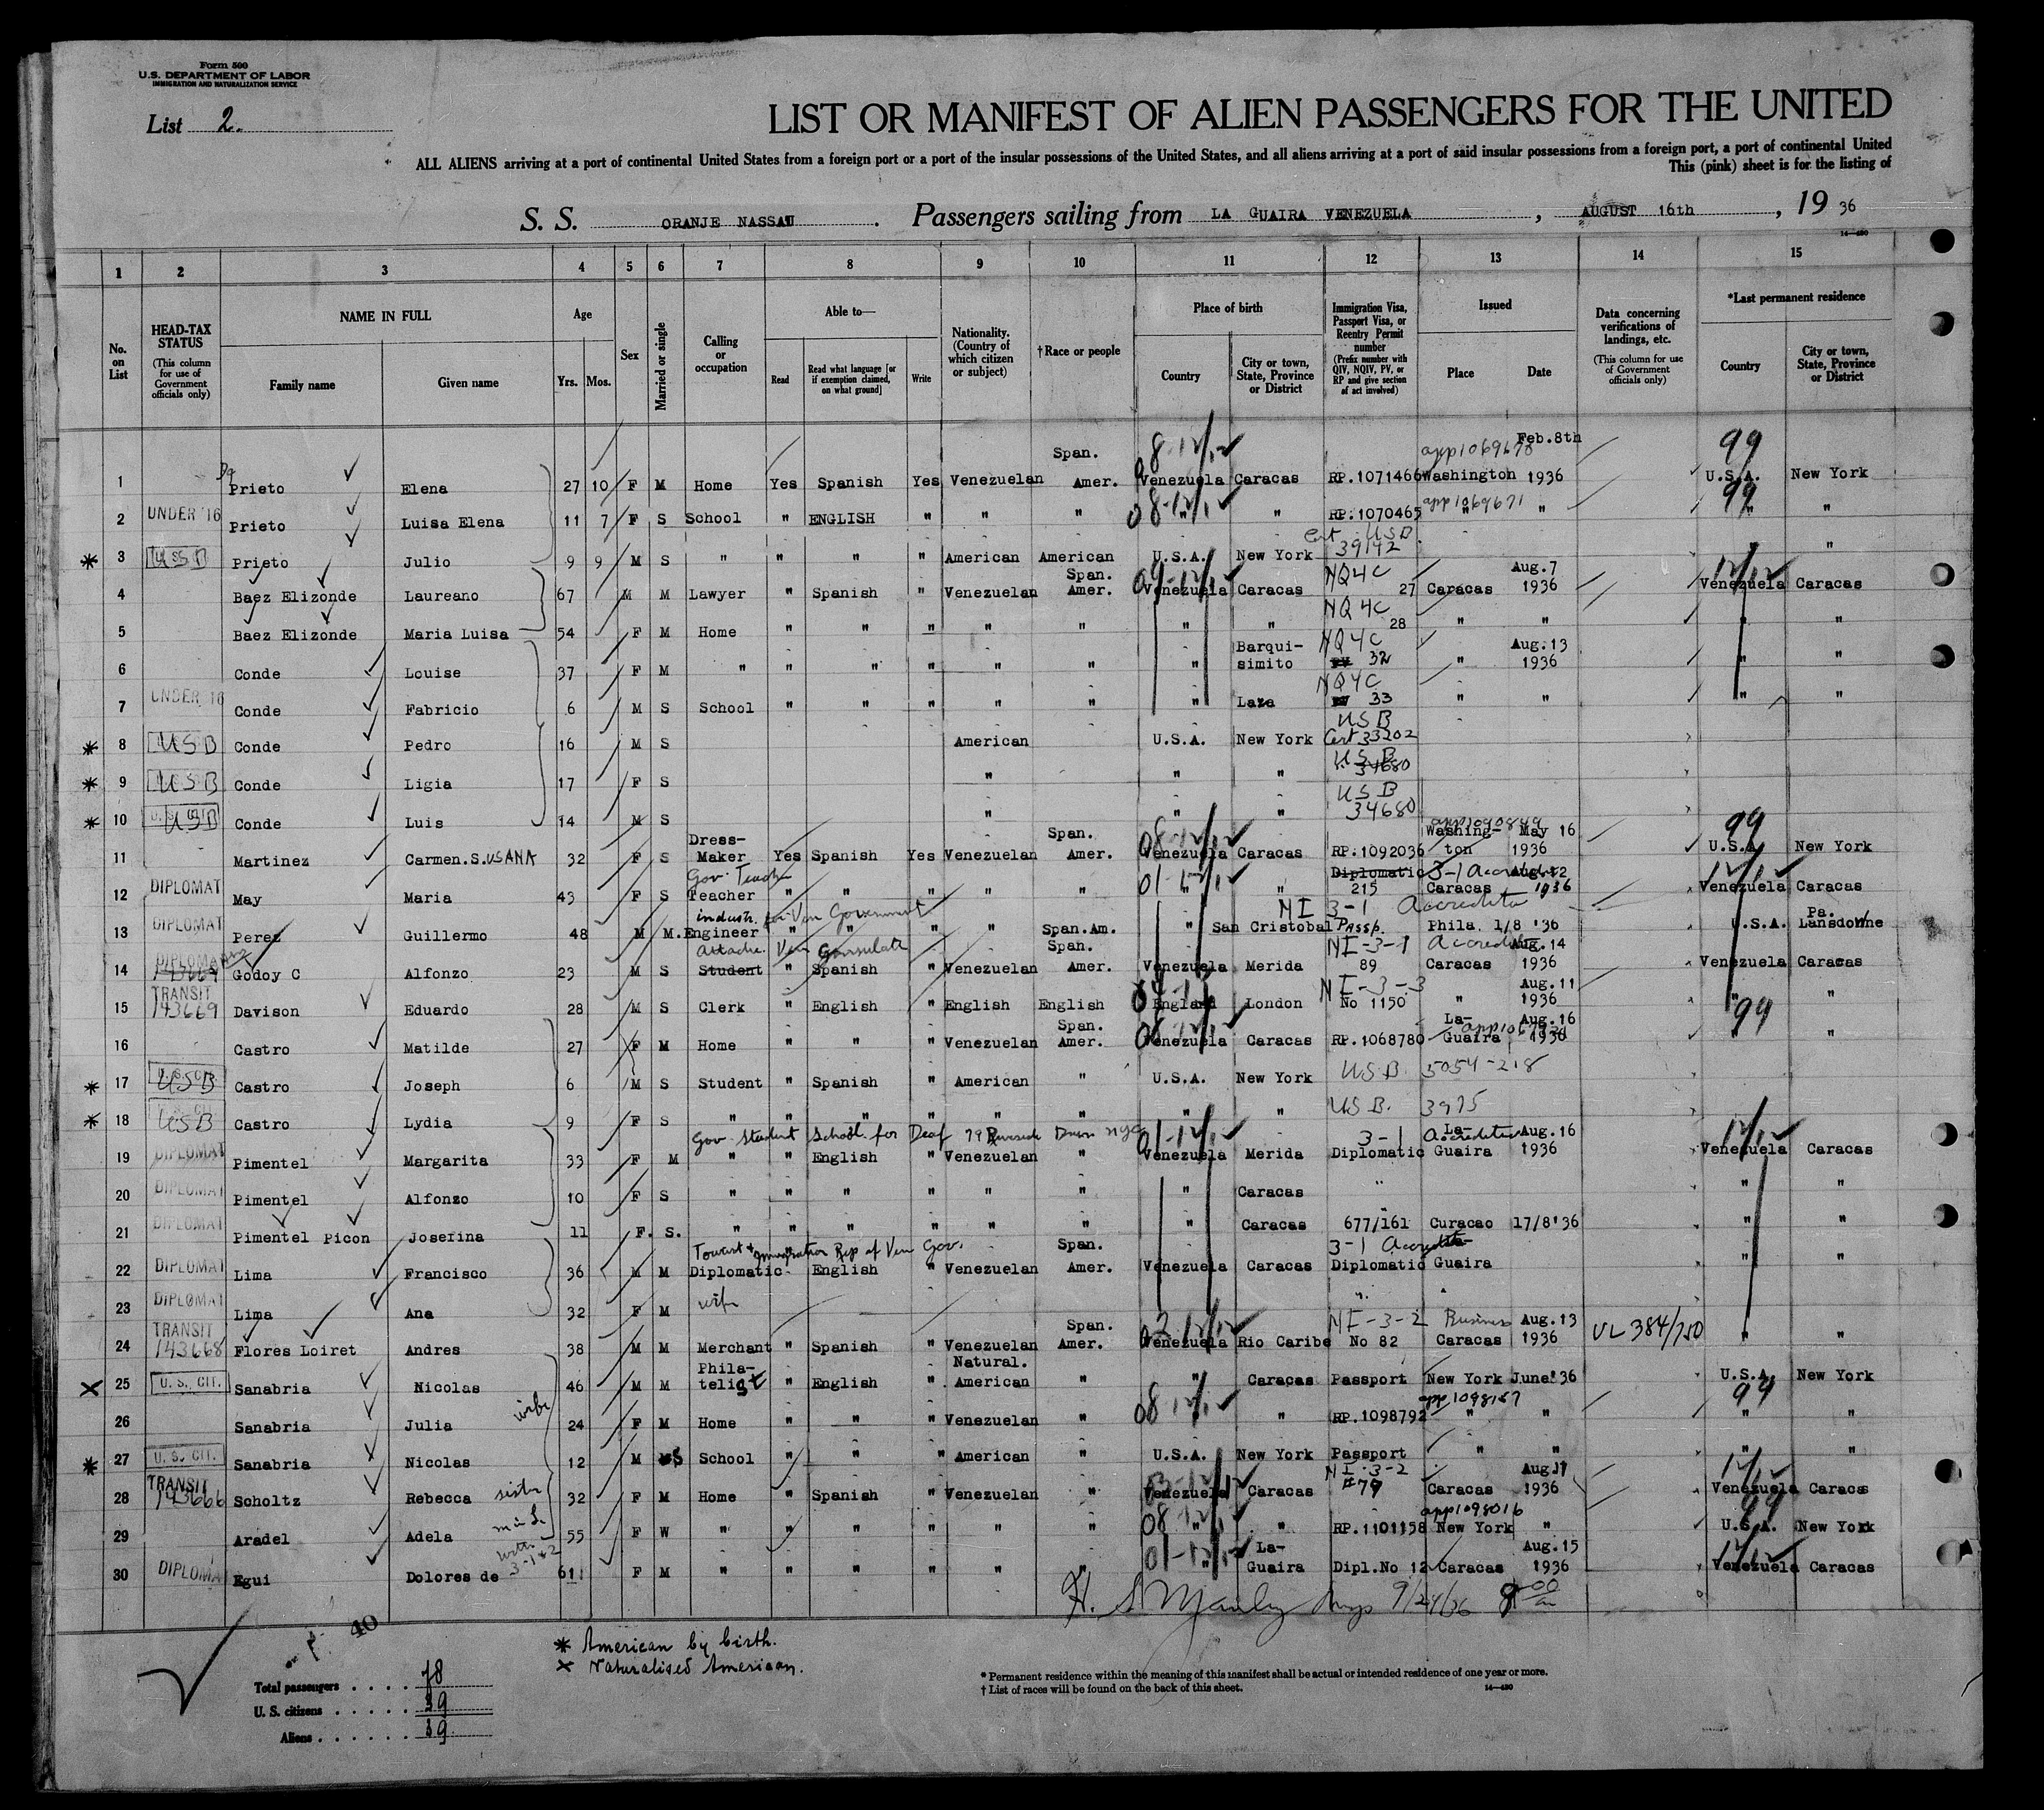 Form 500
U.S. DEPARTMENT OF LABOR
IMMIGRATION AND NATURALIZATION SERVICE
List 2.
LIST OR MANIFEST OF ALIEN PASSENGERS FOR THE UNITED
ALL ALIENS arriving at a port of continental United States from a foreign port or a port of the insular possessions of the United States, and all aliens arriving at a port of said insular possessions from a foreign port, a port of continental United
This (pink) sheet is for the listing of
S. S. ORANJE NASSAU. Passengers sailing from LA GUAIRA VENEZUELA, AUGUST 16th, 19 36
14—480
1 2 3 4 5 6 7 8 9 10 11 12 13 14 15
No. on List
HEAD-TAX STATUS (This column for use of Government officials only)
NAME IN FULL Family name Given name
Age Yrs. Mos.
Sex
Married or single
Calling or occupation
Able to— Read Read what language [or if exemption claimed, on what ground] Write
Nationality. (Country of which citizen or subject)
†Race or people
Place of birth Country City or town, State, Province or District
Immigration Visa, Passport Visa, or Reentry Permit number (Prefix number with QIV, NQIV, PV, or RP and give section of act involved)
Issued Place Date
Data concerning verifications of landings, etc. (This column for use of Government officials only)
*Last permanent residence Country City or town, State, Province or District
1 Prieto Elena 27 10 F M Home Yes Spanish Yes Venezuelan Span. Amer. Venezuela Caracas RP.1071466 app1069678 Washington Feb.8th 1936 99 U.S.A. New York
2 UNDER 16 Prieto Luisa Elena 11 7 F S School " ENGLISH " " " " " RP.1070465 " " 99 " "
* 3 USB Prieto Julio 9 9 M S " " " " American American U.S.A. New York Cert. USB 39142 "
4 Baez Elizonde Laureano 67 M M Lawyer " Spanish " Venezuelan Span. Amer. Venezuela Caracas NQ4C 27 Caracas Aug.7 1936 Venezuela Caracas
5 Baez Elizonde Maria Luisa 54 F M Home " " " " " " " NQ4C 28 " " " "
6 Conde Louise 37 F M " " " " " " " Barqui-simito NQ4C 32 " Aug.13 1936 " "
7 UNDER 16 Conde Fabricio 6 M S School " " " " " " Laza NQ4C 33 " " " "
* 8 USB Conde Pedro 16 M S American U.S.A. New York USB Cert 33202
* 9 USB Conde Ligia 17 F S " " " USB 34680
* 10 USB Conde Luis 14 M S " " " USB 34680
11 Martinez Carmen.S.USANA 32 F S Dress-Maker Yes Spanish Yes Venezuelan Span. Amer. Venezuela Caracas RP.1092036 app1090849 Washing-ton May 16 1936 99 U.S.A. New York
12 DIPLOMAT May Maria 43 F S Gov. Teach Teacher " " " " " " " Diplomatic 215 3-1 Caracas 1936 Venezuela Caracas
13 DIPLOMAT Perez Guillermo 48 M M. industr. for Ven Government Engineer " " " " Span.Am. " San Cristobal NI 3-1 Accredita Passp. Phila. 1/8 '36 U.S.A. Pa. Lansdowne
14 DIPLOMAT Godoy C Alfonzo 23 M S Attache Ven Consulate Student " Spanish " Venezuelan Span. Amer. Venezuela Merida NI-3-1 89 Caracas Aug.14 1936 Venezuela Caracas
15 TRANSIT 143669 Davison Eduardo 28 M S Clerk " English " English English England London NI-3-3 No 1150 " Aug.11 1936 " "
16 Castro Matilde 27 F M Home " " " Venezuelan Span. Amer. Venezuela Caracas RP.1068780 La-Guaira Aug.16 1936 99 " "
* 17 USB Castro Joseph 6 M S Student " Spanish " American " U.S.A. New York USB 5054-218
* 18 USB Castro Lydia 9 F S " " " " " " " " USB. 3975
19 DIPLOMAT Pimentel Margarita 33 F M Gov. Student School for Deaf " " English " Venezuelan " Venezuela Merida 3-1 Diplomatic La-Guaira Aug.16 1936 Venezuela Caracas
20 DIPLOMAT Pimentel Alfonzo 10 F S " " " " " " " Caracas " " "
21 DIPLOMAT Pimentel Picon Josefina 11 F. S. " " " " " " " Caracas 677/161 Curacao 17/8'36 " "
22 DIPLOMAT Lima Francisco 36 M M Tourist & Immigration Rep of Ven Gov. Diplomatic English " Venezuelan Span. Amer. Venezuela Caracas 3-1 Diplomatic Guaira " "
23 DIPLOMAT Lima Ana 32 F M wife
24 TRANSIT 143668 Flores Loiret Andres 38 M M Merchant " Spanish " Venezuelan Span. Amer. Venezuela Rio Caribe NI-3-2 Business No 82 Caracas Aug.13 1936 VL 384/750 " "
X 25 U. S. CIT. Sanabria Nicolas 46 M M Phila-telist " English " Natural. American " " Caracas Passport New York June'36 U.S.A. New York
26 Sanabria Julia wife 24 F M Home " " " Venezuelan " " RP.1098792 app1098157 " " 99 " "
* 27 U. S. CIT. Sanabria Nicolas 12 M S School " " " American " U.S.A. New York Passport " " " "
28 TRANSIT 143666 Scholtz Rebecca sister 32 F M Home " Spanish " Venezuelan " Venezuela Caracas NI-3-2 #79 Caracas Aug.11 1936 Venezuela Caracas
29 Aradel Adela 55 F W " " " " " " " " RP.1101158 app1098016 New York " 99 U.S.A. New York
30 DIPLOMA Egui Dolores de 61 F M " " " " " " La-Guaira Dipl.No 12 Caracas Aug.15 1936 Venezuela Caracas
9/24/36
40
* American by birth.
X Naturalised American.
Total passengers . . . . 78
U. S. citizens . . . . . 39
Aliens . . . . . . 39
* Permanent residence within the meaning of this manifest shall be actual or intended residence of one year or more.
† List of races will be found on the back of this sheet.
14—480